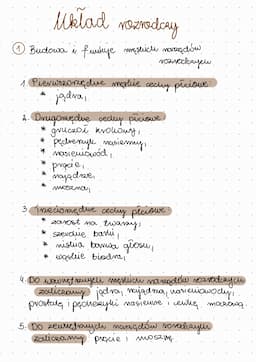 Układ rozrodczy
1 Budowa i funkcje męskich narządów
rozrodczych
1. Pierwszorzędne męskie cechy płciowe
* jądra,
2. Drugorzędne cechy płciowe
* gruczoł krokowy,
* pęcherzyki nasienny,
* nasieniowód,
* prącie,
* najądrze,
* moszna,
3. Trzeciorzędne cechy płciowe
* zarost na twarzy,
* szerokie barki,
* niska barwa głosu,
* wąskie biodra,
4. Do wewnętrznych męskich narządów rozrodczych
zaliczamy jądra, najądrza, nasieniowody,
prostatę, pęcherzyki nasienne i cewkę moczową.
5. Do zewnętrznych narządów rozrodczych
zaliczamy prącie i mosznę.